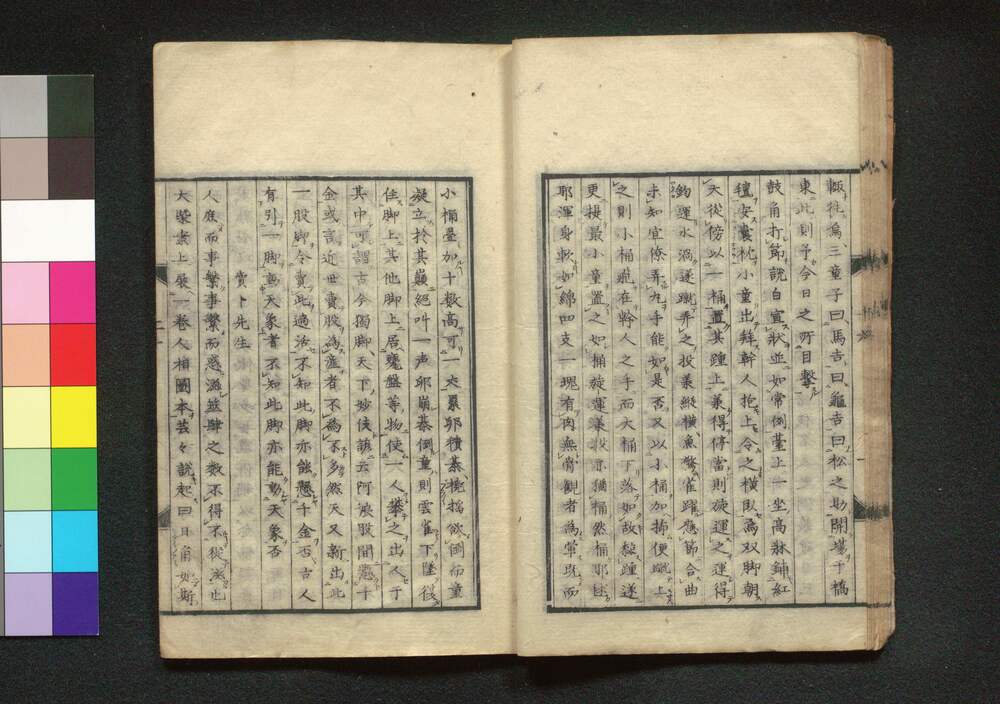 輙徃為三童子曰馬吉曰龜吉曰松之助開場于橋
東此則予今日之所目擊
鼓角打節說白宣狀並如常例臺上一坐高牀鋪紅
氊安囊枕小童出拜幹人抱上令之橫臥為双脚朝
天從傍以一桶置其踵上兼得停當則旋運之運得
鈎運水渦遂蹴弄之投兼縱橫魚驚雀躍應節合曲
未知宜僚弄丸手能如是否又以小桶加揷便蹴上
之則小桶疏在幹人之手而大桶下落如故黏踵遂
更接最小童置之如桶旋運兼投亦猶桶然桶耶柱
耶渾身軟如綿四支一塊有肉無骨觀者為畢既而
小桶疊加十數高可一丈累卵積棊撓搖欲倒而童
凝立於其巔絕叫一声卵崩棊倒童則雲雀下墜彼
住脚上其他脚上居甕盤等物使一人攀之出人于
其中可謂古今獨脚天下妙伎諺云阿瀧股間懸十
金或言近世賣股為產者不為不多然天又新出此
一股脚令賣此適活不知此脚亦能懸千金否古人
有引一脚動天象者不知此脚亦能動天象否
賣卜先生
人庶而事繁事繁而惑滋筮肆之數不得不從滋也
大槩案上展一卷人相圖本芸々說起曰日角如斯